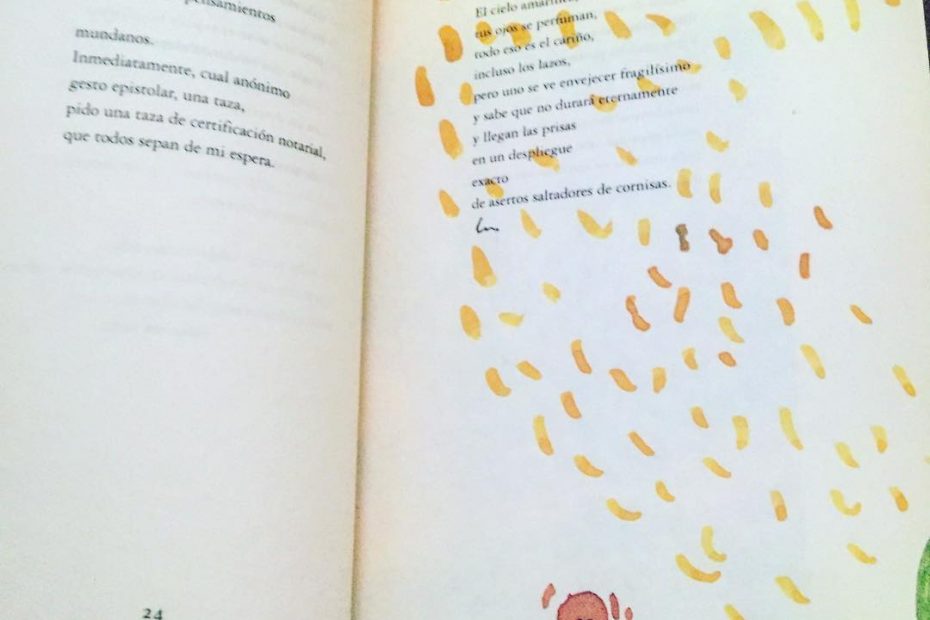 pensamientos
mundanos.
Inmediatamente, cual anónimo
gesto epistolar, una taza,
pido una taza de certificación notarial,
que todos sepan de mi espera.
24
El cielo
tus ojos se perfuman,
todo eso es el cariño,
incluso los lazos,
pero uno se ve envejecer fragilísimo
y sabe que no durará eternamente
y llegan las prisas
en un despliegue
exacto
de asertos saltadores de cornisas.